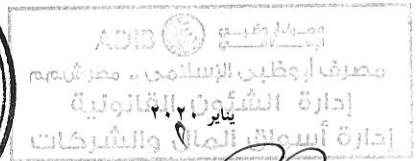 مصرف أبوظبي
الإسلامي
ADIB
مصرف أبوظبي الإسلامي - مصر ش.م.م
إدارة الشئون القانونية
يناير ٢٠٢٠
إدارة أسواق المال والشركات